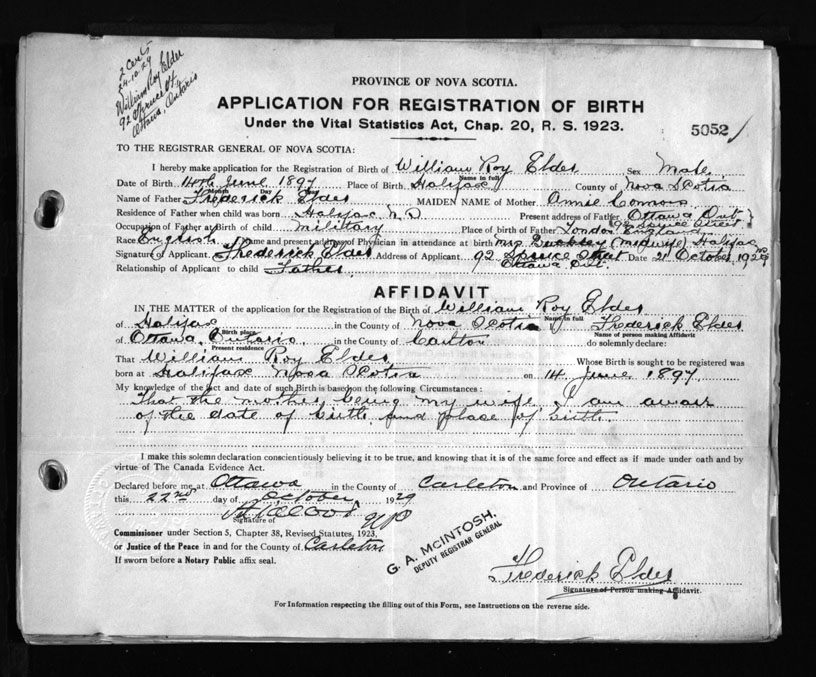 2 Certs
24.10.29
William Roy Elder
92 Spruce St
Ottawa, Ontario
PROVINCE OF NOVA SCOTIA.
APPLICATION FOR REGISTRATION OF BIRTH
Under the Vital Statistics Act, Chap. 20, R. S. 1923.
5052
TO THE REGISTRAR GENERAL OF NOVA SCOTIA:
I hereby make application for the Registration of Birth of William Roy Elder Sex Male
Name in full
Date of Birth 14th June 1897 Place of Birth Halifax County of Nova Scotia
Month Day
Name of Father Frederick Elder MAIDEN NAME of Mother Annie Connors
Residence of Father when child was born Halifax N.S. Present address of Father Ottawa Ont
92 Spruce Street
Occupation of Father at Birth of child military Place of birth of Father London England
Race English Name and present address of Physician in attendance at birth Mrs (midwife) Halifax NS
Signature of Applicant Frederick Elder Address of Applicant 92 Spruce Street Date 21 October 1929
Ottawa Ont.
Relationship of Applicant to child Father
AFFIDAVIT
IN THE MATTER of the application for Registration of the Birth of William Roy Elder
Name in full
of Halifax in the County of Nova Scotia I, Frederick Elder
Birth place Name of person making Affidavit
of Ottawa, Ontario in the County of Carlton do solemnly declare:
Present residence
That William Roy Elder Whose Birth is sought to be registered was
born at Halifax Nova Scotia on 14 June 1897
My knowledge of the fact and date of such Birth is based on the following Circumstances:
That the mother being my wife I am awair
of the date of birth and place of birth.
I make this solemn declaration conscientiously believing it to be true, and knowing that it is of the same force and effect as if made under oath and by
virtue of The Canada Evidence Act.
Declared before me at Ottawa in the County of Carleton and Province of Ontario
this 22nd day of October 1929
Signature of
Commissioner under Section 5, Chapter 38, Revised Statutes, 1923,
or Justice of the Peace in and for the County of Carleton
If sworn before a Notary Public affix seal.
G. A. McINTOSH,
DEPUTY REGISTRAR GENERAL
Frederick Elder
Signature of Person making Affidavit.
For Information respecting the filling out of this Form, see Instructions on the reverse side.